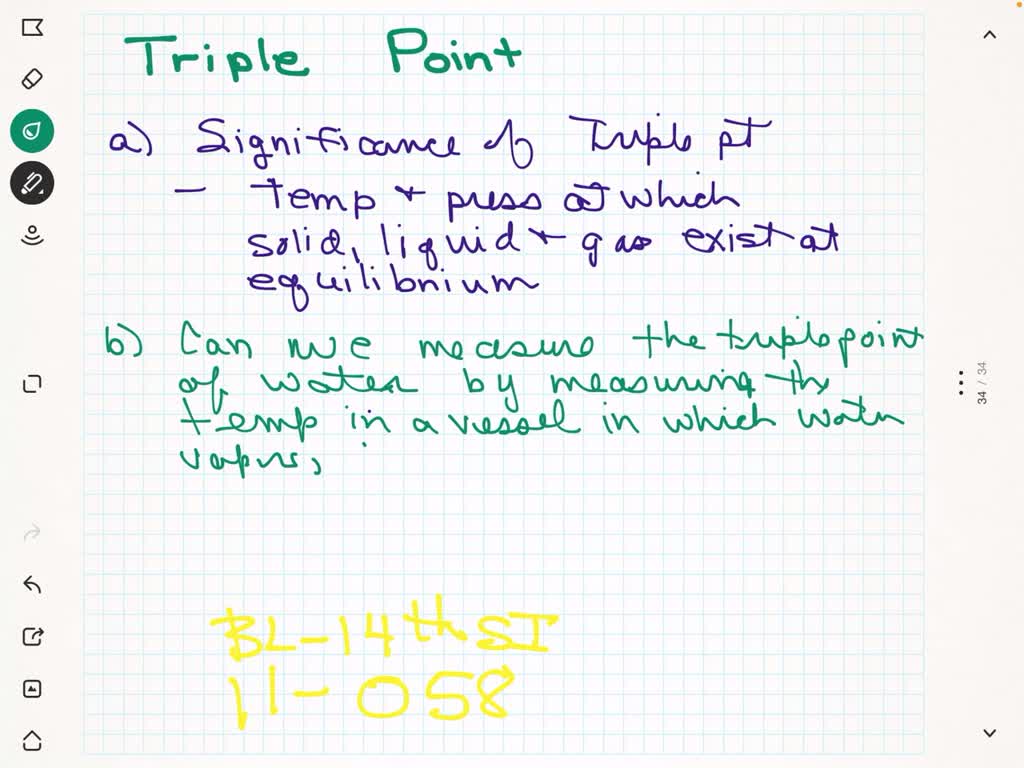 Triple Point
a) Significance of Triple pt
- temp + press at which
solid, liquid + gas exist at
equilibrium
b) Can we measure the triple point
of water by measuring the
temp in a vessel in which water
vapor,
34 / 34
BL-14th SI
11-058